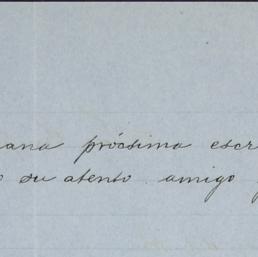 ana prócsima escr
o su atento amigo